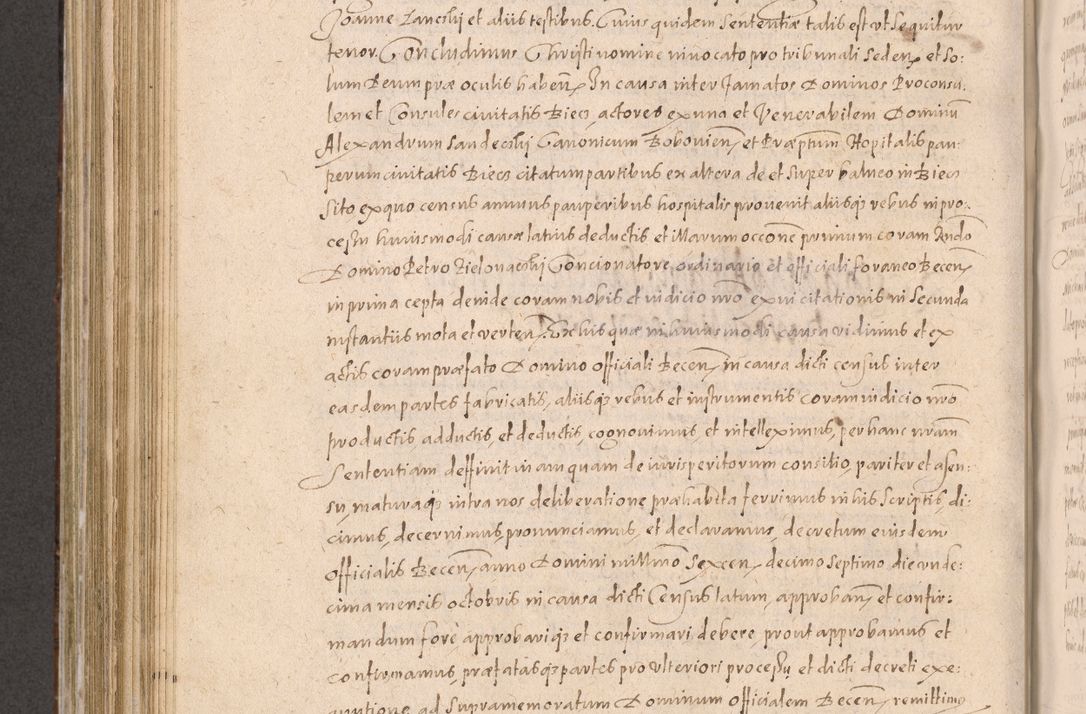 Joanne Zaneslij et aliis testibus. Cuius quidem Sententiæ talis est ut Sequitur
tenor. Concludimus Christi nomine invocato pro tribunali Seden. et So:
lum Deum præ oculis haben. In causa inter famatos Dominos Proconsu
lem et Consules civitatis Biecz, actores ex una et Venerabilem Dominū
Alexandrum Sandeczlij Canonicum Bobovien. et Præptum Hopitalis pau:
perum civitatis Biecz citatum partibus ex altera de et super balneo in Biecz
Sito ex quo census annuus pauperibus hospitalis provenit aliisq3 rebus in pro:
cessu huiusmodi causæ latius deductis et illarum occone primum coram Rndo
Domino Petro Zielonaczlij Concionatore ordinario et officiali foraneo Becen.
in prima cepta deinde coram nobis et iudicio nro ex vi citationis in Secunda
instantiis mota et verten. Ex his quæ in huiusmodi causa vidimus et ex
actis coram præfato Domino Officiali Becen. in causa dicti census inter
easdem partes fabricatis, aliisq3 rebus et instrumentis coram iudicio nro
productis adductis, et deductis, cognovimus, et intelleximus, per hanc nram
Sententiam deffinitivam quam de iurisperitorum consilio, pariter et assen:
su, maturaq3 intra nos deliberatione præhabita ferrimus in his Scriptis, di:
cimus, decernimus, pronunciamus, et declaramus, decretum eiusdem
Officialis Becen. anno Domini millimo Sexcen. decimo Septimo die unde:
cima mensis octobris in causa dicti Census latum, approban. et confir:
mandum fore approbariq3 et confirmari debere prout approbamus et
confirmamus, præfatasq3 partes pro ulteriori processu et dicti decreti exe:
cutione ad Supramemoratum Dominum Officialem Becen. remittimus